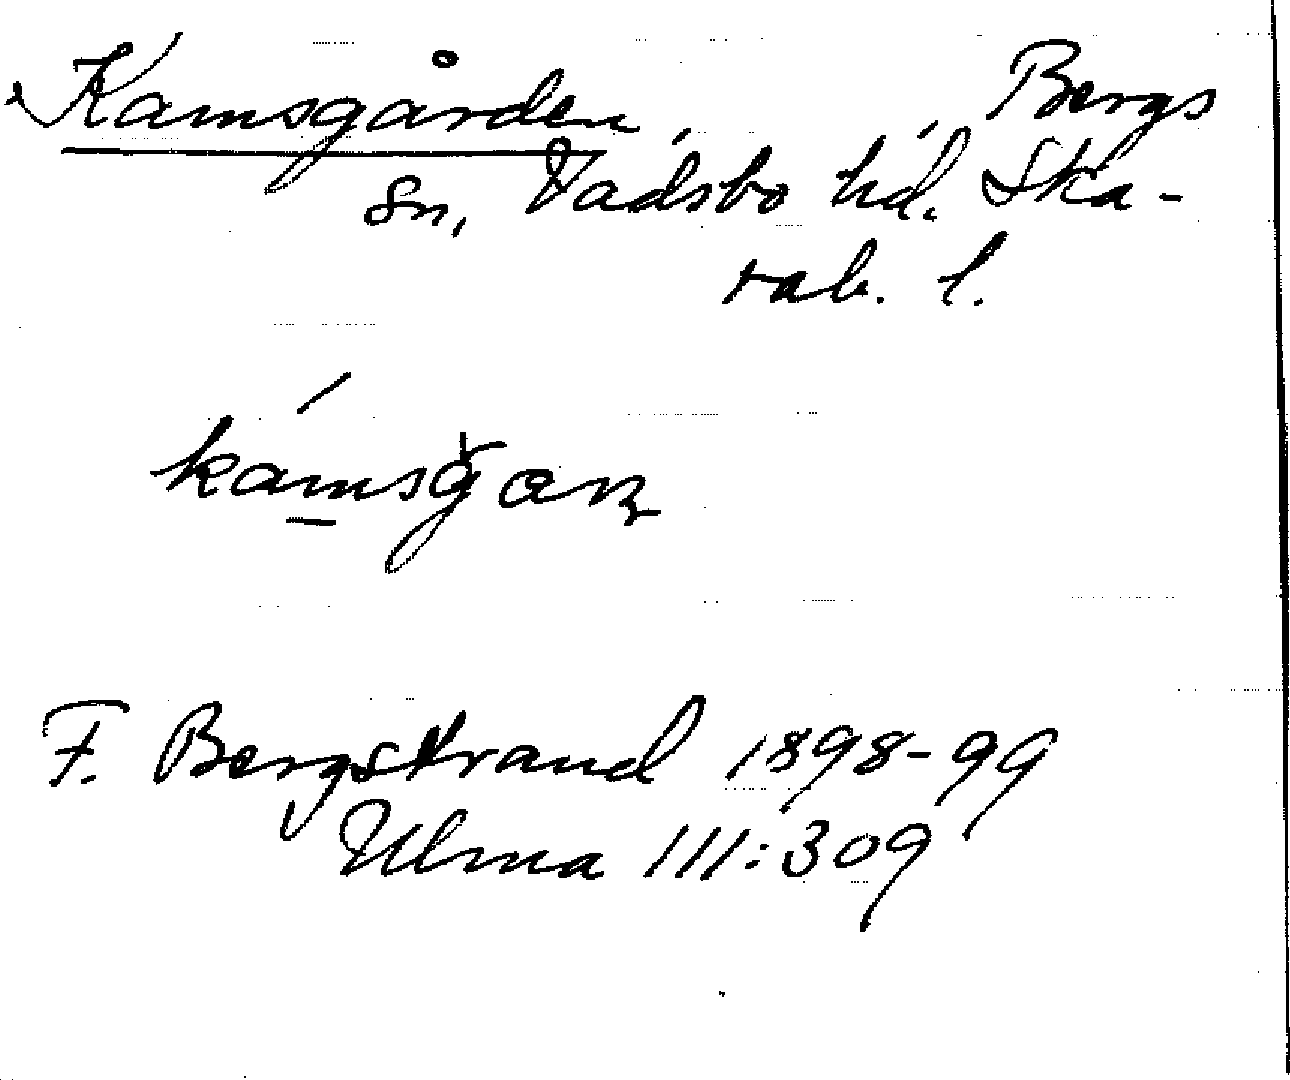 Kamsgården, Bergs
sn, Vadsbo hd. Ska-
rab. l.
F. Bergstrand 1898-99
Ulma 111:309